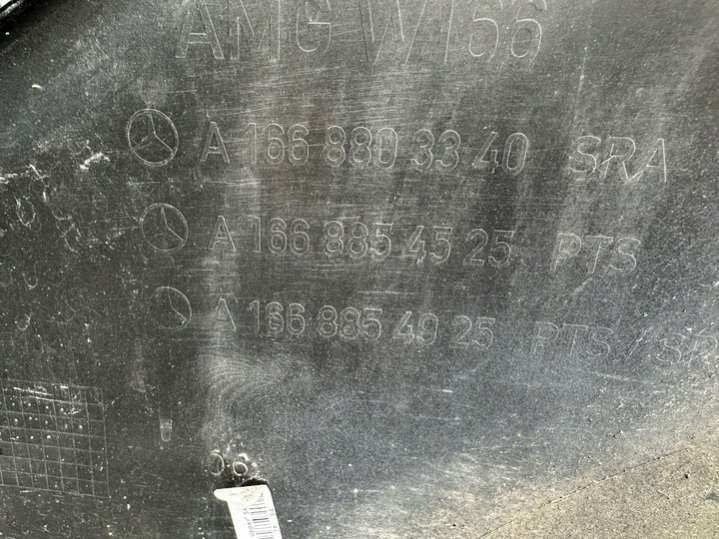 AMG W166
A 166 880 33 40 SRA
A 166 885 45 25 PTS
A 166 885 49 25 PTS /
06